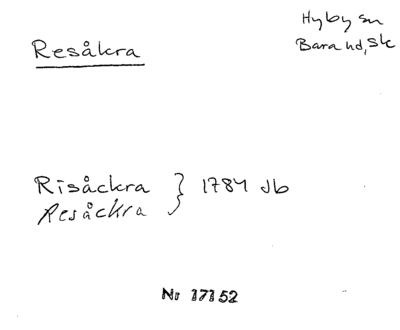 Hyby sn
Resåkra
Bara hd, Sk
Risåckra } 1784 Jb
Resåckra
Nr 17152